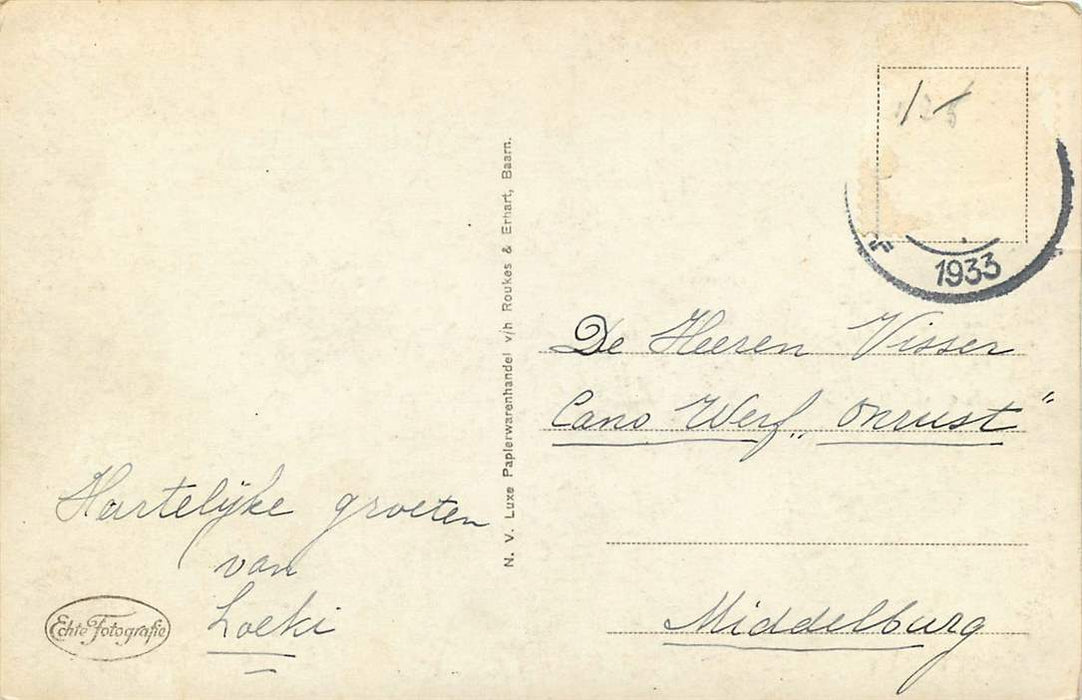 Hartelijke groeten
van
Loeki
Echte Fotografie
N. V. Luxe Papierwarenhandel v/h Roukes & Erhart, Baarn.
1933
De Heeren Visser
Cano Werf „Onrust”
Middelburg